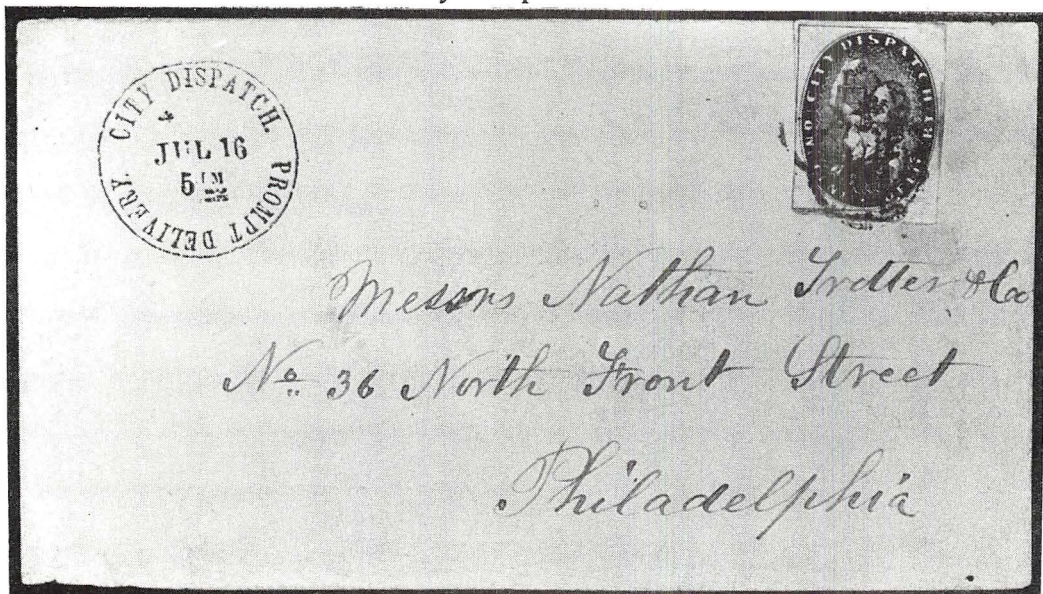 CITY DISPATCH.
JUL 16
5
PROMPT DELIVERY.
CITY DISPATCH
Messrs Nathan Trotter & Co
No. 36 North Front Street
Philadelphia